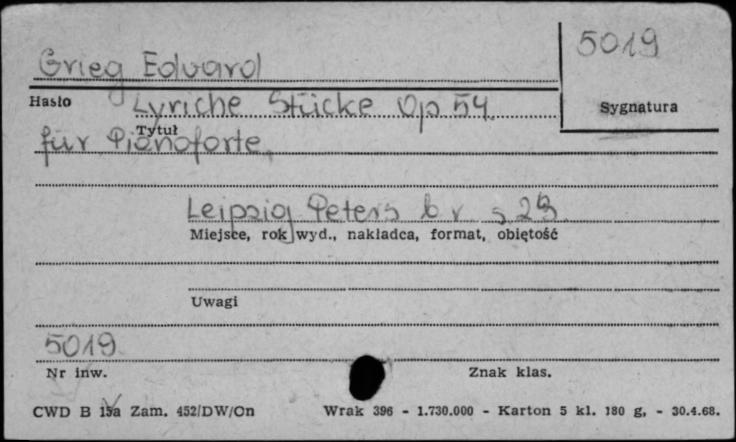 5019
Grieg Edvard
Hasło Lyriche Stücke Op 54.
Sygnatura
Tytuł
für Pianoforte.
Leipzig Peters b r s 23
Miejsce, rok wyd., nakładca, format, objętość
Uwagi
5019
Nr inw. Znak klas.
CWD B 15a Zam. 452/DW/On Wrak 396 - 1.730.000 - Karton 5 kl. 180 g, - 30.4.68.